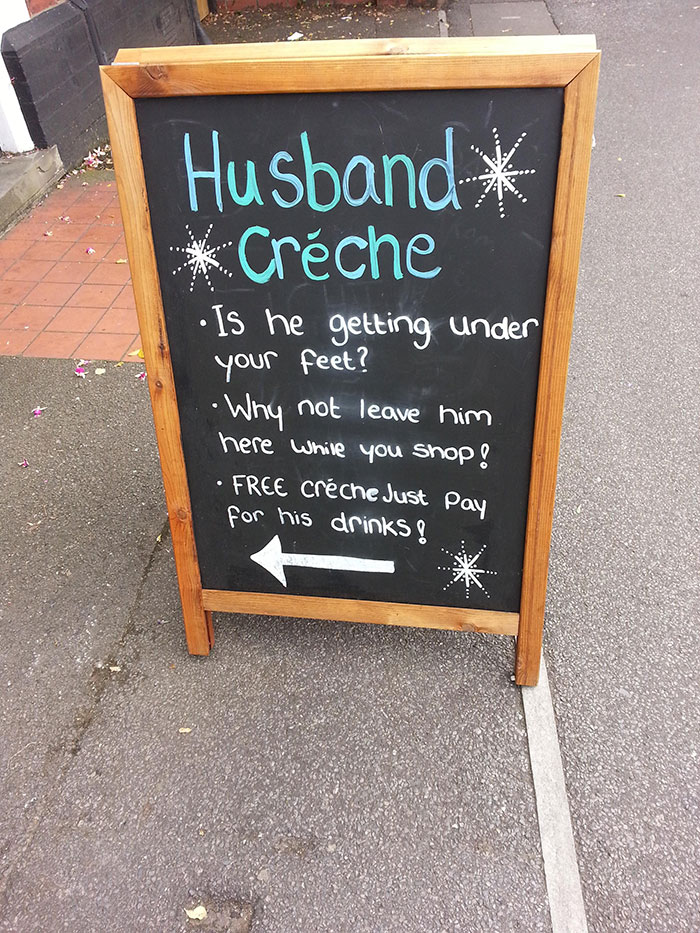 Husband
Créche
· Is he getting under
your feet?
· Why not leave him
here while you shop!
· FREE créche Just Pay
for his drinks!